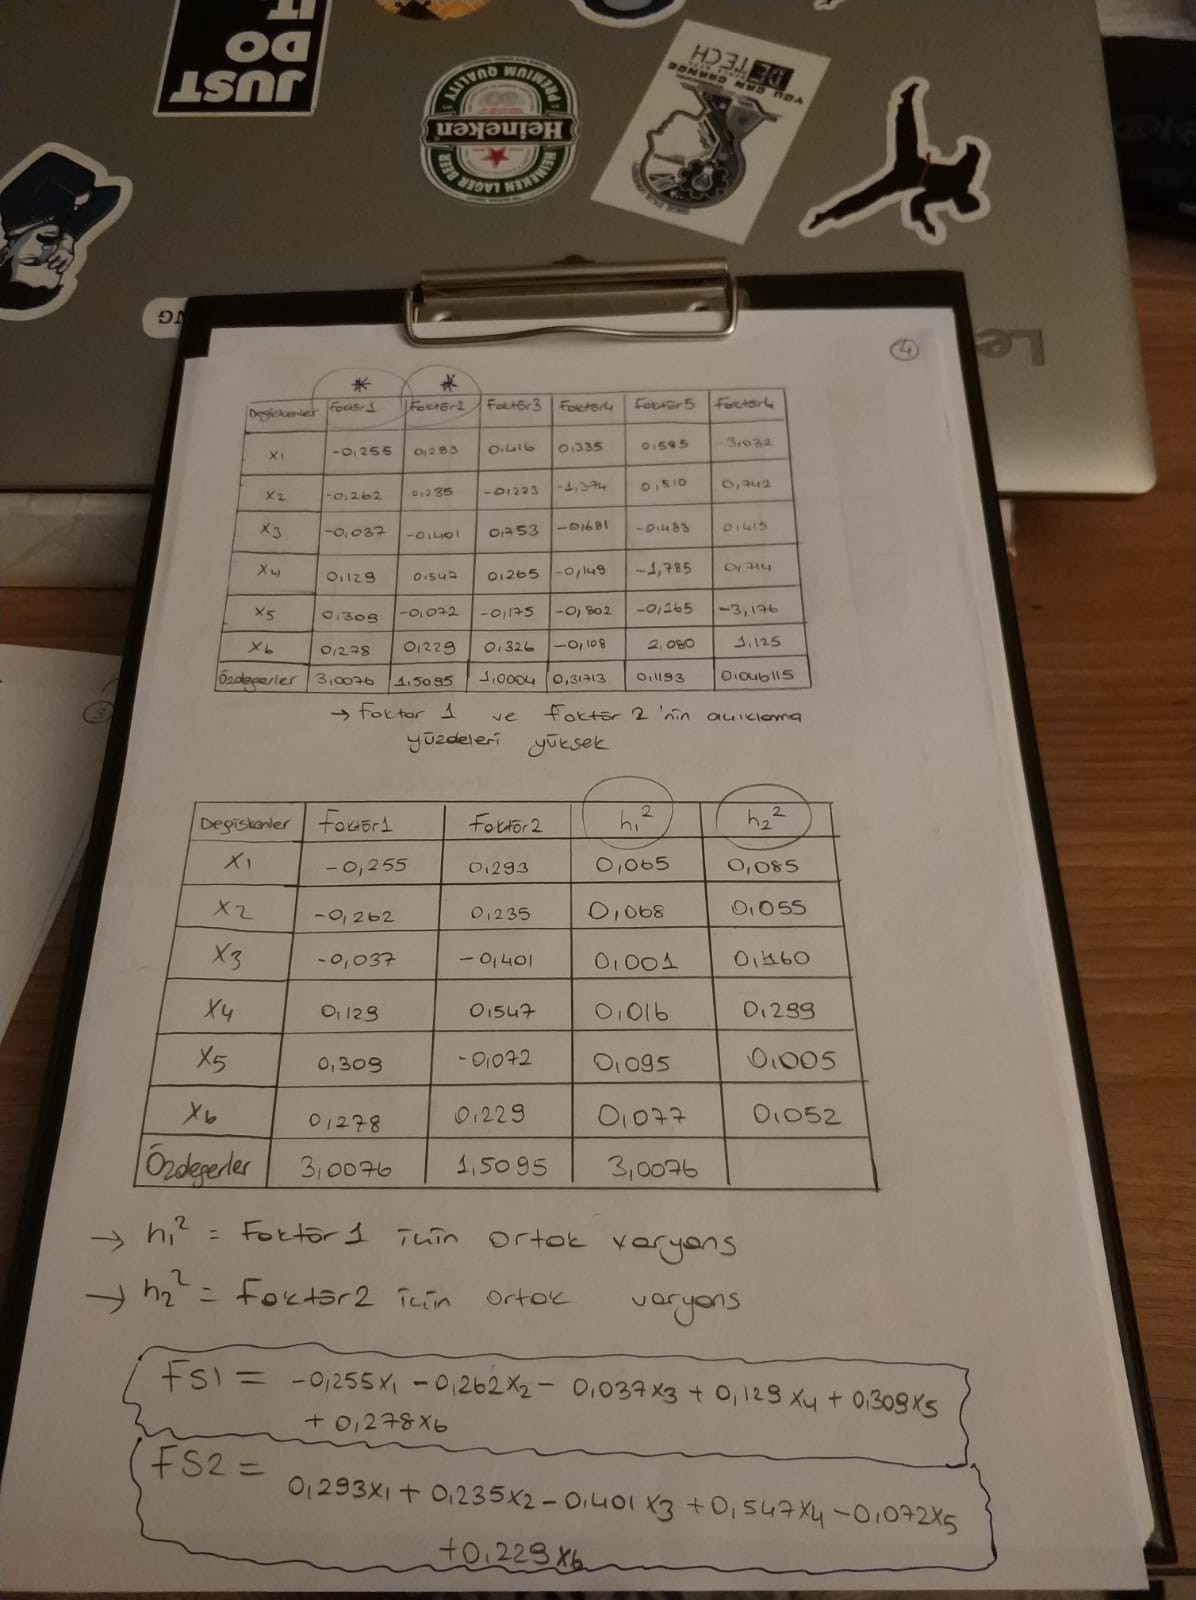 JUST
DO
IT
PREMIUM QUALITY
Heineken
HEINEKEN LAGER BEER
YOU CAN CHANGE
DE TECH
Le
NG
4
3
* *
Değişkenler Faktör1 Faktör2 Faktör3 Faktör4 Faktör5 Faktör6
X1 -0,255 0,293 0,416 0,335 0,585 -3,032
X2 -0,262 0,235 -0,223 -1,374 0,510 0,742
X3 -0,037 -0,401 0,753 -0,681 -0,483 0,415
X4 0,129 0,547 0,265 -0,149 -1,785 0,714
X5 0,309 -0,072 -0,175 -0,802 -0,165 -3,176
X6 0,278 0,229 0,326 -0,108 2,080 1,125
Özdeğerler 3,0076 1,5095 1,0004 0,31713 0,1193 0,046115
→ Faktör 1 ve Faktör 2'nin açıklama
yüzdeleri yüksek
Değişkenler Faktör1 Faktör2 h₁² h₂²
X1 -0,255 0,293 0,065 0,085
X2 -0,262 0,235 0,068 0,055
X3 -0,037 -0,401 0,001 0,160
X4 0,129 0,547 0,016 0,299
X5 0,309 -0,072 0,095 0,005
X6 0,278 0,229 0,077 0,052
Özdeğerler 3,0076 1,5095 3,0076
→ h₁² = Faktör1 için ortak varyans
→ h₂² = Faktör2 için ortak varyans
FS1 = -0,255x₁ - 0,262x₂ - 0,037x₃ + 0,129x₄ + 0,309x₅
+ 0,278x₆
FS2 =
0,293x₁ + 0,235x₂ - 0,401x₃ + 0,547x₄ - 0,072x₅
+0,229x₆